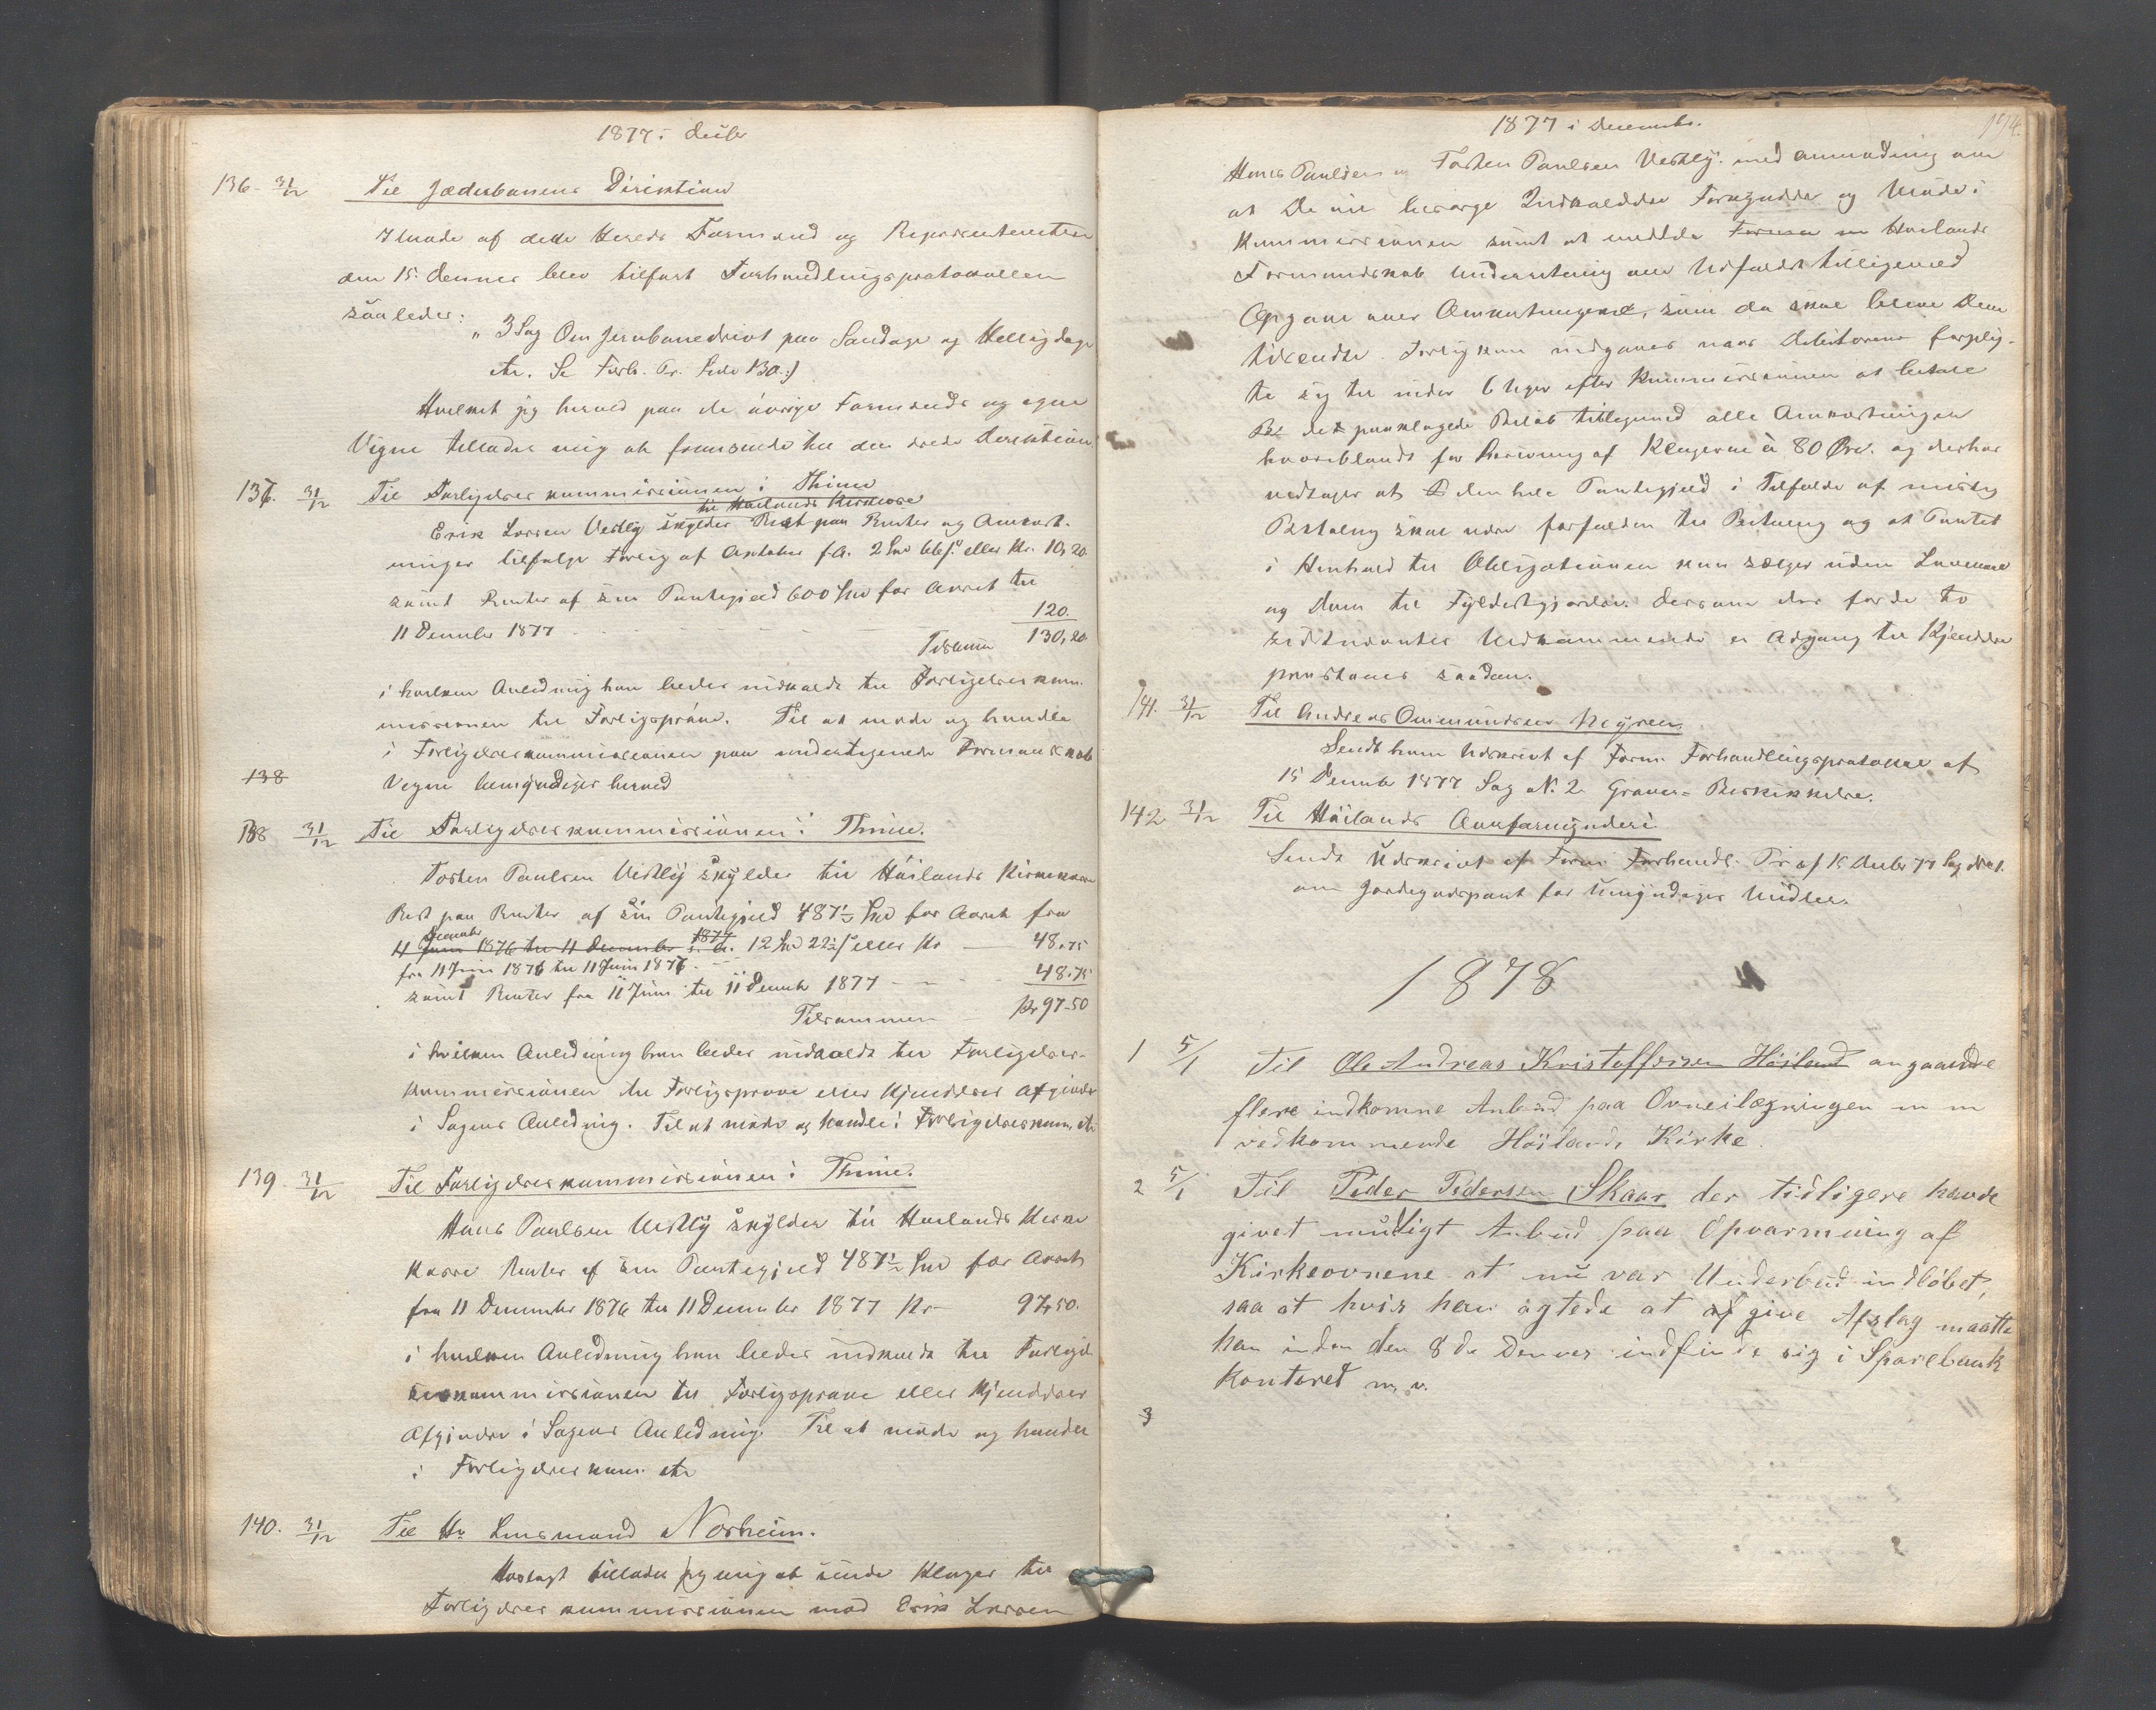 1877 i Decbr
136. 31/12 Til Jæderbanens Direktion
I Møde af dette Herreds Formænd og Repræsentanter
den 15. dennes blev tilført Forhandlingsprotokollen
saaledes:
" 3 Sag Om Jernbanedrivt paa Søndage og Helligdage
etc. Se Forh. Pr. Side 130.:)
Hvilket jeg herved paa de øvrige Formænds og egne
Vegne tillader mig at fremsende til den ærede Direktion
137. 31/12 Til Forligelseskommissionen i Thime
til Høilands Kirkekasse
Erik Larsen Vestly skylder Rest paa Renter og Omkost-
ninger tilfølge Forlig af Oktober f.A. 2 Spd 66 ß. eller Kr. 10,20
samt Renter af sin Pantegjæld 600 Spd for Aaret til
11 December 1877 120.
Tilsammen 130,20
i hvilken Anledning han bedes indkaldt til Forligelseskom-
missionen til Forligsprøve. Til at møde og handle
i Forligelseskommissionen paa undertegnede Formandskabs
138
Vegne bemyndiges herved
138 31/12 Til Forligelseskommissionen i Thime.
Torsten Paulsen Vestly skylder til Høilands Kirkekasse
Rest paa Renter af sin Pantegjæld 487½ Spd for Aaret fra
December 1877
11 Juni 1876 til 11 December s. A. 12 Spd 22½ ß eller Kr — 48.75
fra 11 Juni 1876 til 11 Juni 1877
samt Renter fra 11 Juni til 11 Decembr 1877 - - - 48.75
Tilsammen — Kr 97-50
i hvilken Anledning han bedes indkaldt til Forligelses-
kommissionen til Forligsprøve eller Kjendelses Afgivelse
i Sagens Anledning. Til at møde og handle i Forligelseskom. etc
139. 31/12 Til Forligelseskommissionen i Thime.
Hans Paulsen Vestly skylder til Høilands Kirke
Kasse Renter af sin Pantegjæld 487½ Spd for Aaret
fra 11 December 1876 til 11 December 1877 Kr — 97,50.
i hvilken Anledning han bedes indkaldt til Forligel-
seskommissionen til Forligsprøve eller Kjendelses
Afgivelse i Sagens Anledning. Til at møde og handle
i Forligelseskom. etc
140. 31/12 Til Hr Lensmand Norheim.
Vedlagt tillader jeg mig at sende Klager til
Forligelseskommissionen mod Erik Larsen
1877 i December.
Hans Paulsen og Torsten Paulsen Vestly. med anmodning om
at De vil besørge Indkaldelse Forkyndt og Møde i
Kommissionen samt at meddele Høilands
Formandskab Underretning om Udfaldet tilligemed
Opgave over Omkostningerne, som da skal blive Dem
tilsendte. Forlig kan indgaaes naar Debitorerne forplig-
te sig til inden 6 Uger efter Kommissionen at betale
det paaklagede Beløb tilligemed alle Omkostninger
hvoriblandt for Skrivning af Klagerne à 80 Øre. og derhos
vedtages at den hele Pantegjæld i Tilfælde af mislig
Betaling skal være forfalden til Betaling og at Pantet
i Henhold til Obligationen kan sælges uden Lovmaal
og Dom til Fyldestgjørelse. Dersom der for de to
sidstnævntes Vedkommende er Adgang til Kjendelse
paastaaes saadan.
141. 31/12 Til Andreas Ommundsen
Sendt ham Udskrivt af Form. Forhandlingsprotokol af
15 Decembr 1877 Sag N. 2. Graver-Beskikkelse.
142 31/12 Til Høilands Overformynderi
Sendt Udskrivt af Form. Forhandl. Pr. af 15 Decbr 77 Sag
om Jordegodspant for Umyndiges Midler.
1878
1 5/1 Til Ole Andreas Kristoffersen Høiland angaaende
flere indkomne Anbud paa Ovneilægningen m m
vedkommende Høilands Kirke.
2 5/1 Til Peder Pedersen Skaar der tidligere havde
givet mundligt Anbud paa Opvarmning af
Kirkeovnene at nu var Underbud indløbet,
saa at hvis han agtede at give Afslag maatte
han inden den 8de Dennes indfinde sig i Sparebank
Kontoret m. v.
3